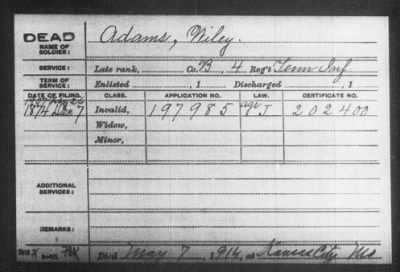 DEAD
NAME OF SOLDIER:
Adams, Wiley.
SERVICE:
Late rank, Co. B. 4 Reg't Tenn Inf
TERM OF SERVICE:
Enlisted , 1 Discharged , 1
DATE OF FILING. CLASS. APPLICATION NO. LAW. CERTIFICATE NO.
1874 Dec 7 Invalid, 197985 age J 202400
Widow,
Minor,
ADDITIONAL SERVICES:
REMARKS:
Died May 7, 1914, at Kansas City Mo